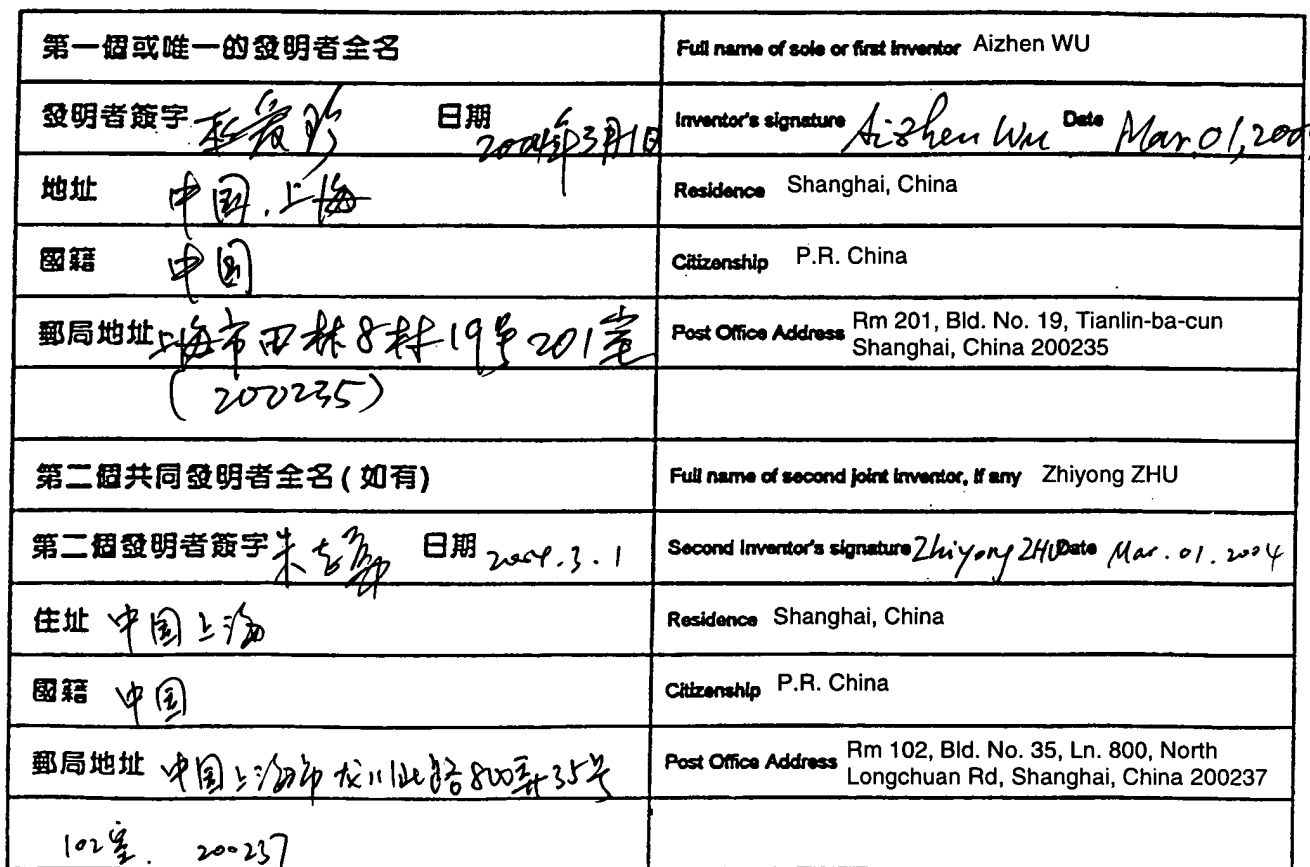 第一個或唯一的發明者全名 Full name of sole or first inventor Aizhen WU
發明者簽字 爱珍 日期 2004年3月1日 Inventor's signature Aizhen Wu Date Mar. 01, 200
地址 中国.上海 Residence Shanghai, China
國籍 中国 Citizenship P.R. China
郵局地址 上海市田林8村19号201室 Post Office Address Rm 201, Bld. No. 19, Tianlin-ba-cun
Shanghai, China 200235
(200235)
第二個共同發明者全名(如有) Full name of second joint inventor, if any Zhiyong ZHU
第二個發明者簽字 朱志勇 日期 2004.3.1 Second Inventor's signature Zhiyong ZHU Date Mar. 01. 2004
住址 中国上海 Residence Shanghai, China
國籍 中国 Citizenship P.R. China
郵局地址 中国上海市龙川北路800弄35号 Post Office Address Rm 102, Bld. No. 35, Ln. 800, North
Longchuan Rd, Shanghai, China 200237
102室. 200237